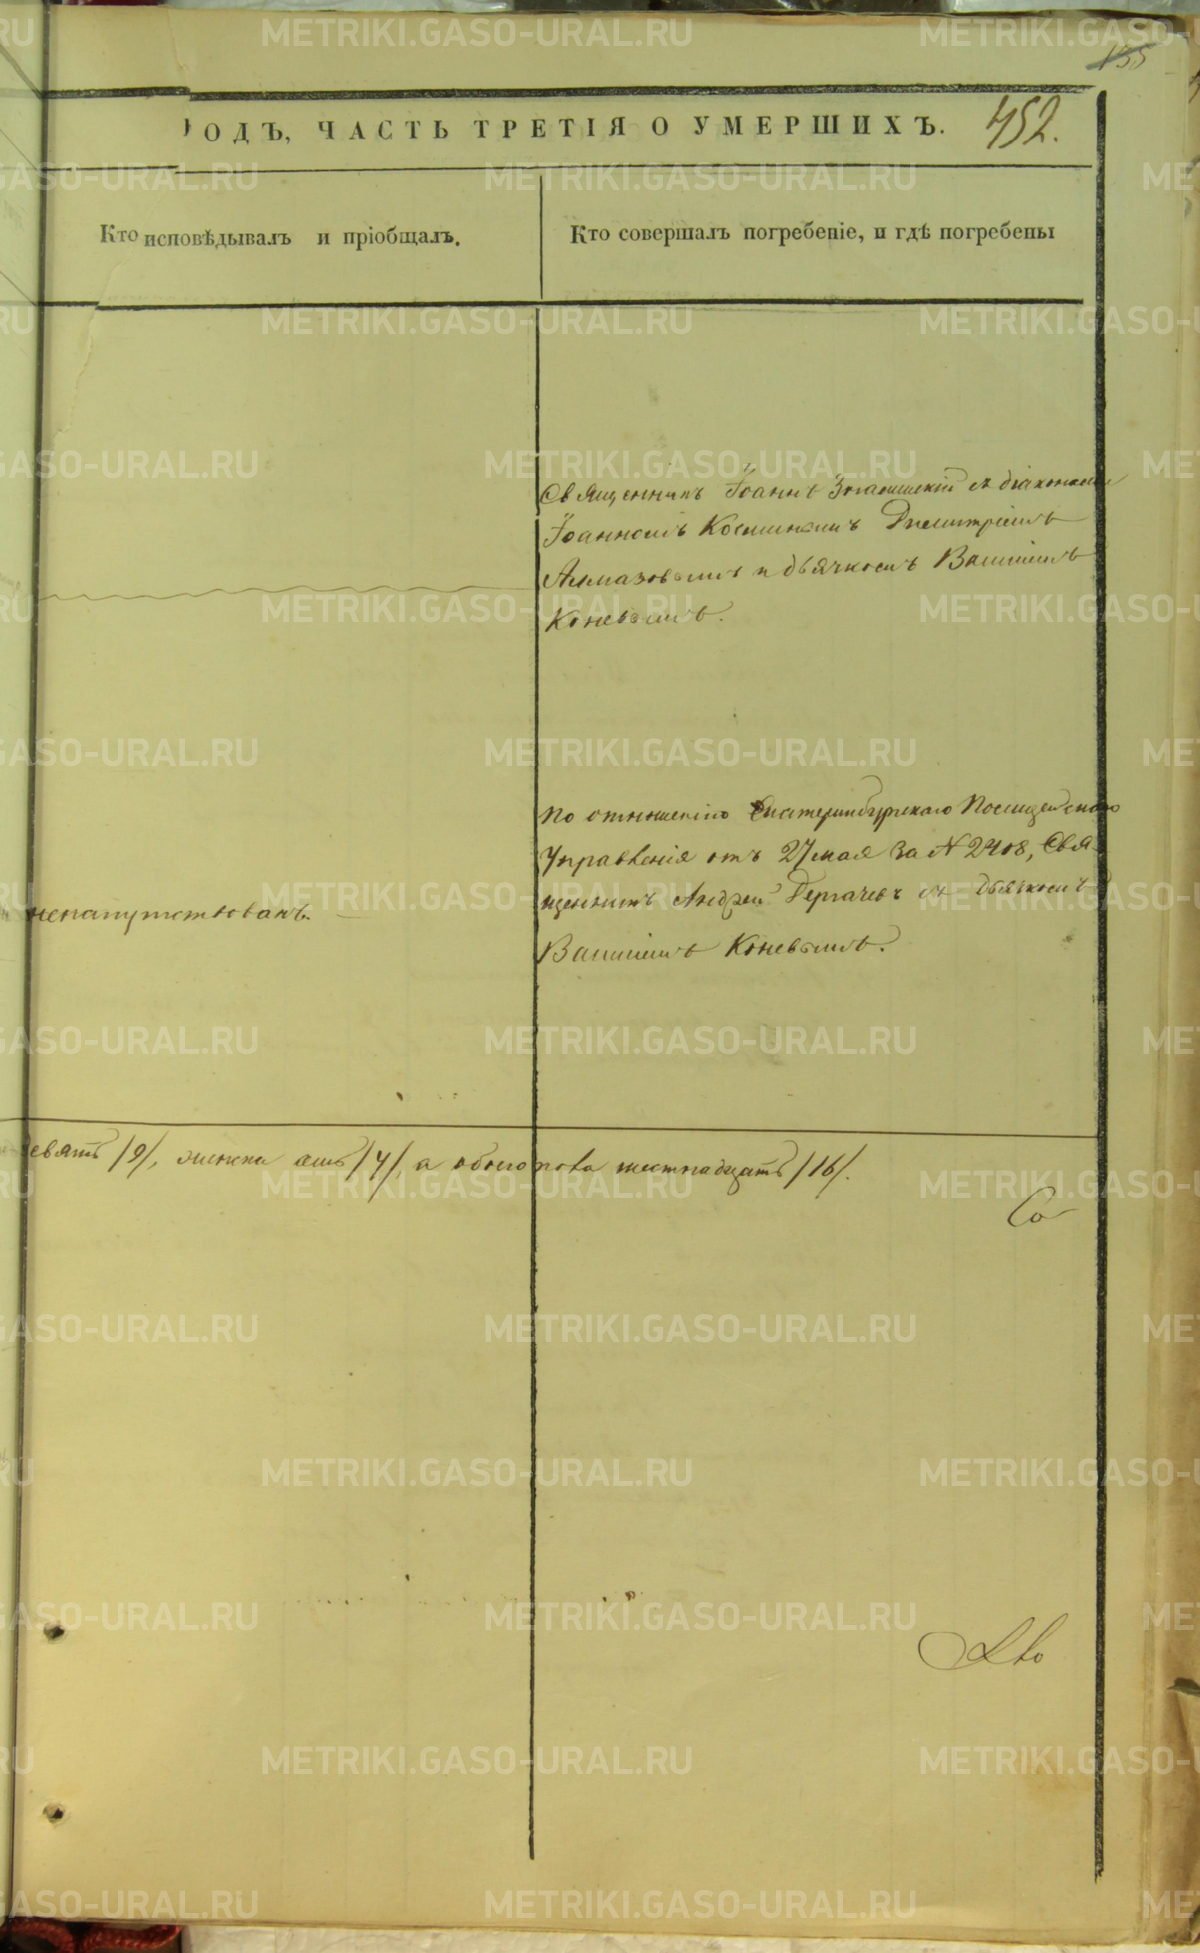 155
ОДЪ, ЧАСТЬ ТРЕТІЯ О УМЕРШИХЪ.
452.
Кто исповѣдывалъ и пріобщалъ.
Кто совершалъ погребеніе, и гдѣ погребены
Священникъ Іоаннъ Знаменскій съ діакономъ
Іоанномъ Косминымъ Димитріемъ
Алмазовымъ и дьячкомъ Василіемъ
Коневымъ.
по отношенію Екатеринбургскаго Полицейскаго
Управленія отъ 27 мая за N 2908, Свя-
щенникъ Андрей Дергачевъ съ дьячкомъ
Василіемъ Коневымъ.
ненапутствованъ.
евять /9/, женска семь /7/, а обоего пола шестнадцать /16/.
Со
METRIKI.GASO-URAL.RU